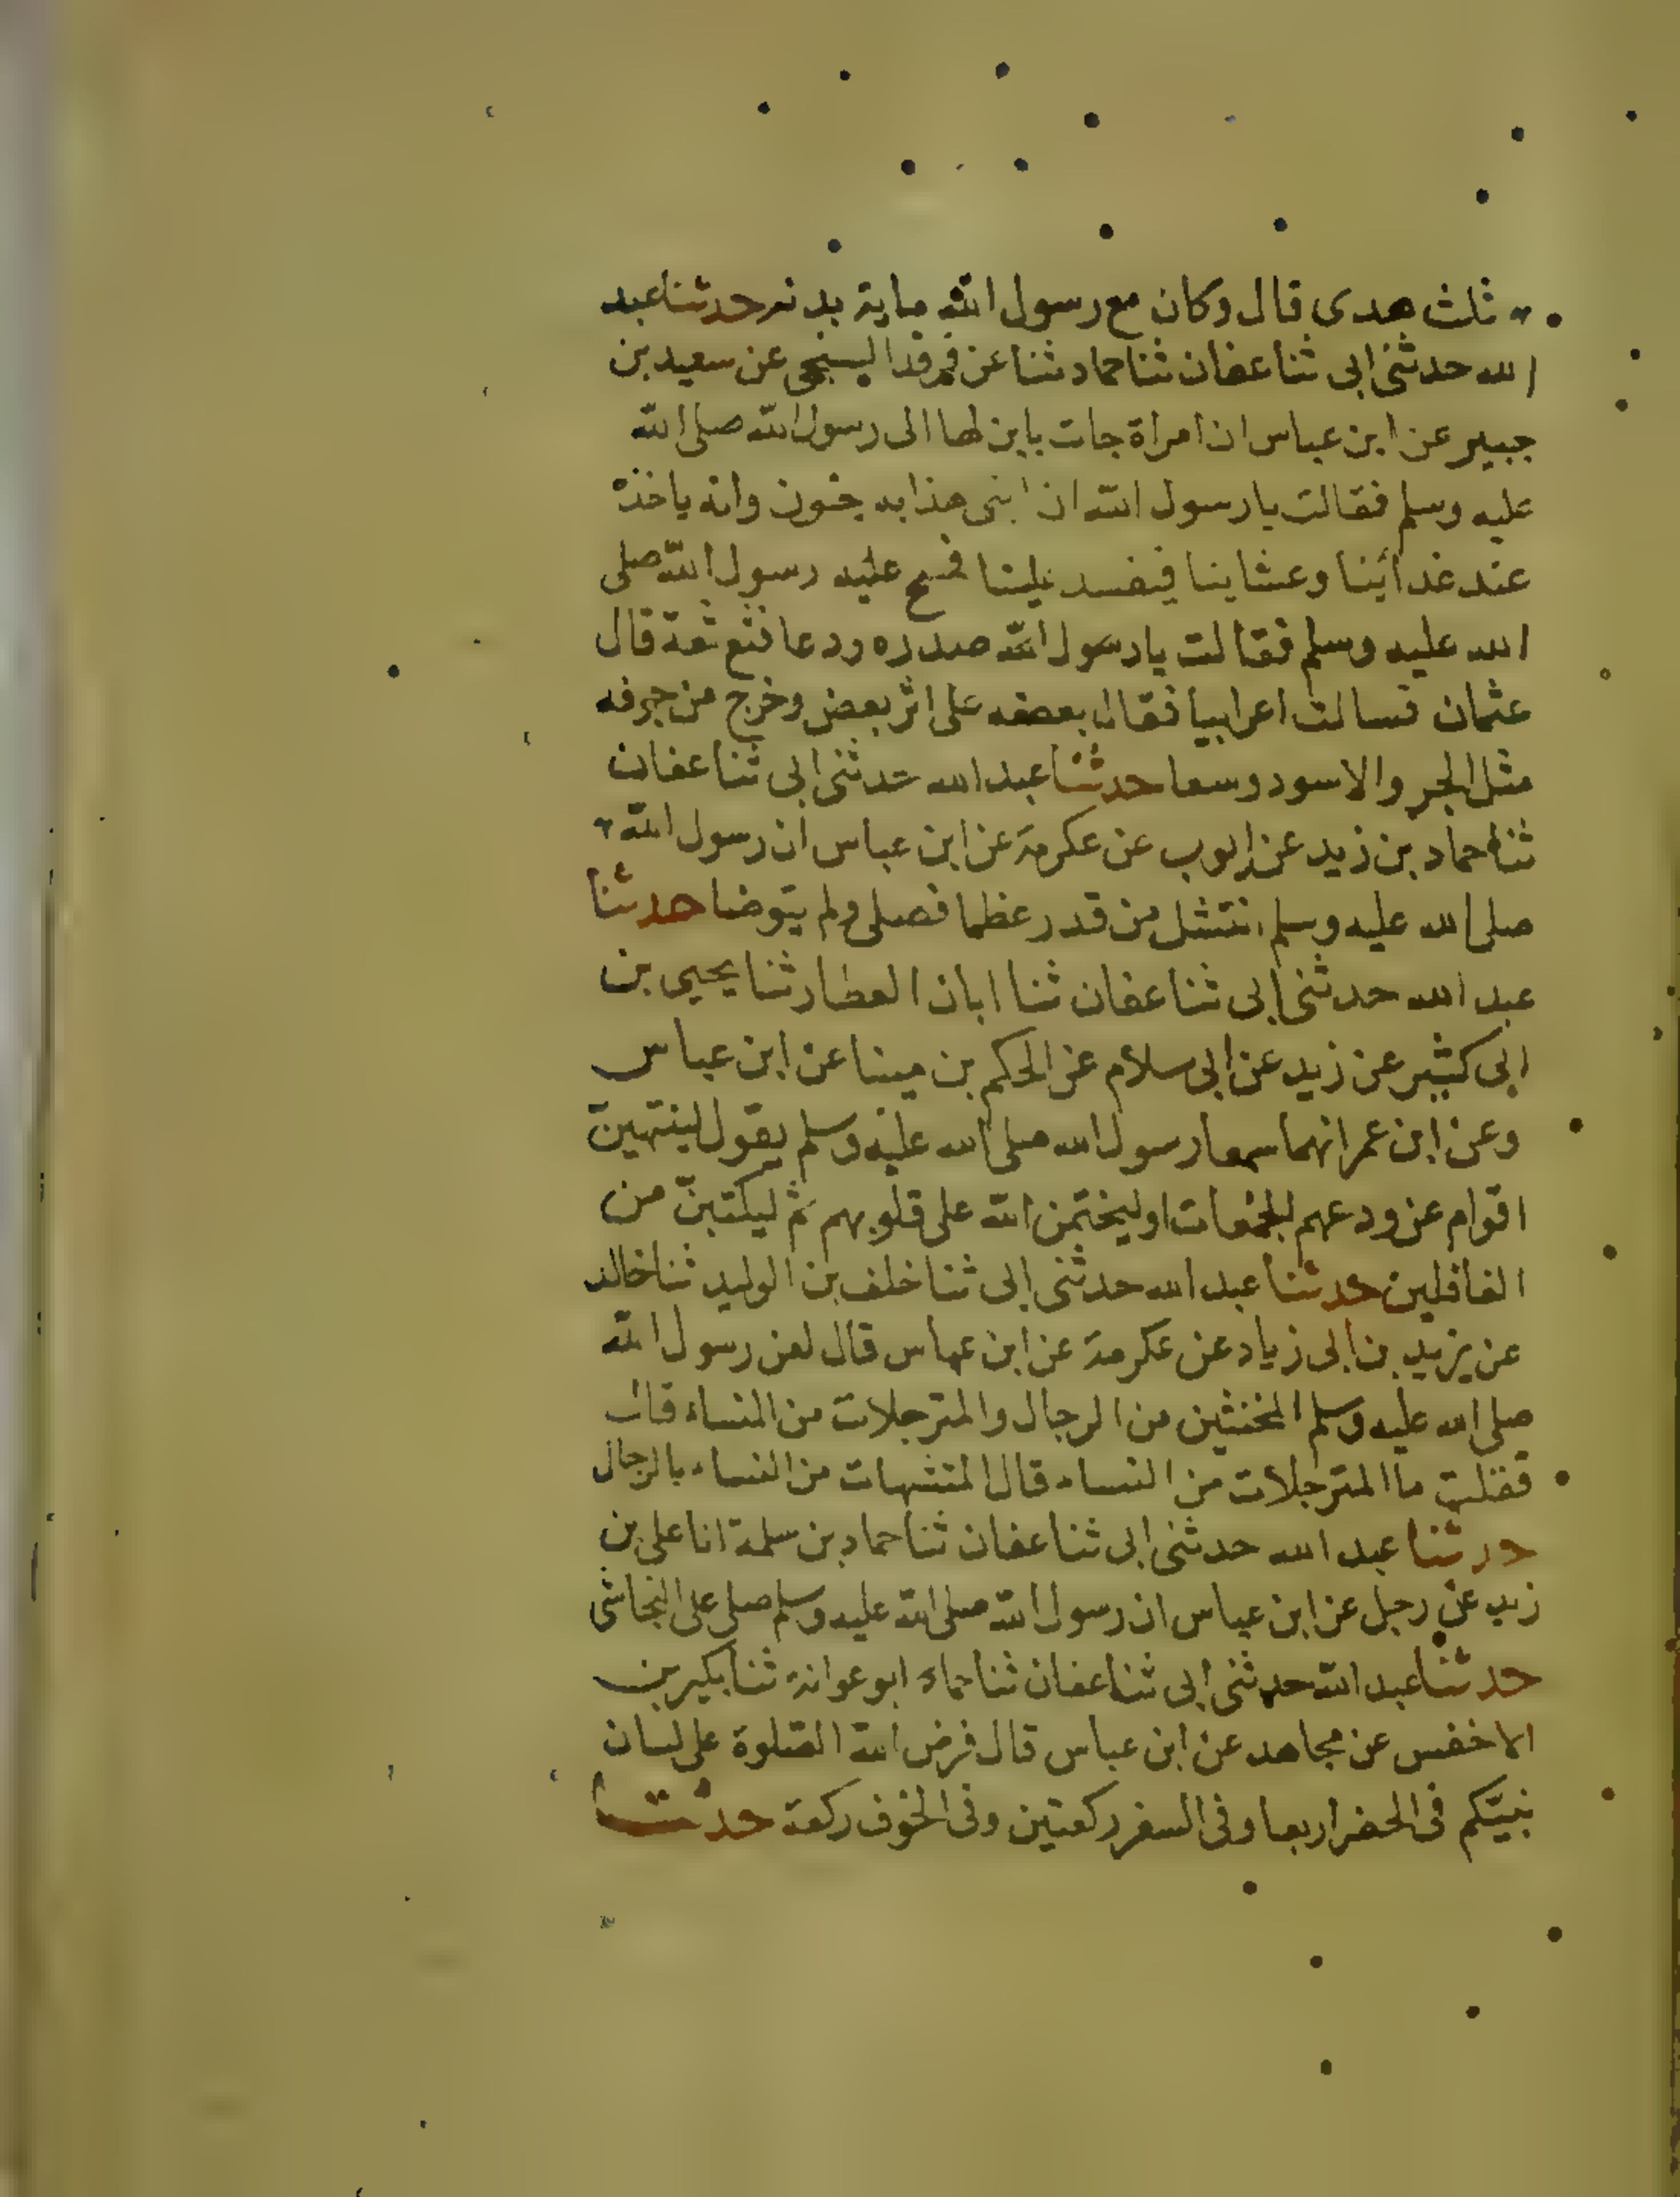 ثلث هدى قال وكان مع رسول الله ماية بدنه حدثنا عبد
الله حدثنى ابى ثنا عفان ثنا حماد ثنا عن فرقد السبخى عن سعيد بن
جبير عن ابن عباس ان امراة جات بابن لها الى رسول الله صلى الله
عليه وسلم فقالت يا رسول الله ان ابنى هذا به جنون وانه ياخذه
عند غدائينا وعشاينا فيفسد علينا فمسح عليه رسول الله صلى
الله عليه وسلم فقالت يا رسول الله صدره ودعا فثع ثعة قال
عثمان فسالت اعرابيا فقال بعضه على اثر بعض وخرج من جوفه
مثل الجرو الاسود وسعا حدثنا عبد الله حدثنى ابى ثنا عفان
ثنا حماد بن زيد عن ايوب عن عكرمة عن ابن عباس ان رسول الله
صلى الله عليه وسلم انتشل من قدر عظما فصلى ولم يتوضا حدثنا
عبد الله حدثنى ابى ثنا عفان ثنا ابان العطار ثنا يحيى بن
ابى كثير عن زيد عن ابى سلام عن الحكم بن مينا عن ابن عباس
وعن ابن عمر انهما سمعا رسول الله صلى الله عليه وسلم يقول لينتهين
اقوام عن ودعهم الجمعات او ليختمن الله على قلوبهم ثم ليكتبنّ من
الغافلين حدثنا عبد الله حدثنى ابى ثنا خلف بن الوليد ثنا خالد
عن يزيد بن ابى زياد عن عكرمة عن ابن عباس قال لعن رسول الله
صلى الله عليه وسلم المخنثين من الرجال والمترجلات من النساء قال
فقلت ما المترجلات من النساء قال المتشبهات من النساء بالرجال
حدثنا عبد الله حدثنى ابى ثنا عفان ثنا حماد بن سلمة انا على بن
زيد عن رجل عن ابن عباس ان رسول الله صلى الله عليه وسلم صلى على النجاشى
حدثنا عبد الله حدثنى ابى ثنا عفان ثنا حماد ابو عوانة ثنا بكير بن
الاخفس عن مجاهد عن ابن عباس قال فرض الله الصلوة على لسان
نبيّكم فى الحضر اربعا وفى السفر ركعتين وفى الخوف ركعة حدثنا